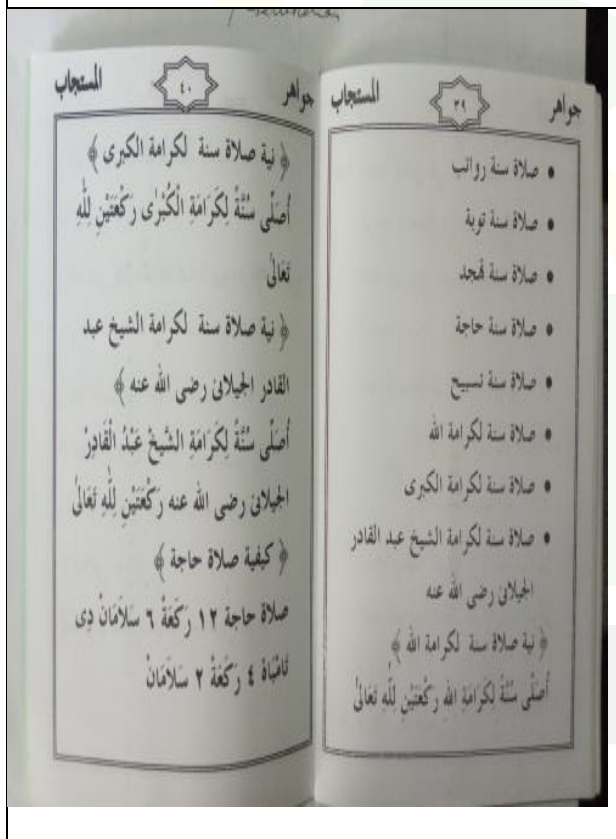 جواهر ٣٩ المستجاب
• صلاة سنة رواتب
• صلاة سنة توبة
• صلاة سنة تهجد
• صلاة سنة حاجة
• صلاة سنة تسبيح
• صلاة سنة لكرامة الله
• صلاة سنة لكرامة الكبرى
• صلاة سنة لكرامة الشيخ عبد القادر
الجيلانى رضى الله عنه
﴿ نية صلاة سنة لكرامة الله ﴾
أُصَلِّى سُنَّةً لِكَرَامَةِ اللهِ رَكْعَتَيْنِ لِلّٰهِ تَعَالٰى
جواهر ٤٠ المستجاب
﴿ نية صلاة سنة لكرامة الكبرى ﴾
أُصَلِّى سُنَّةً لِكَرَامَةِ الْكُبْرٰى رَكْعَتَيْنِ لِلّٰهِ
تَعَالٰى
﴿ نية صلاة سنة لكرامة الشيخ عبد
القادر الجيلانى رضى الله عنه ﴾
أُصَلِّى سُنَّةً لِكَرَامَةِ الشَّيْخْ عَبْدُ الْقَادِرْ
الجيلانى رضى الله عنه رَكْعَتَيْنِ لِلّٰهِ تَعَالٰى
﴿ كيفية صلاة حاجة ﴾
صلاة حاجة ١٢ رَكْعَةْ ٦ سَلاَمَانْ دِى
تَامْبَاهْ ٤ رَكْعَةْ ٢ سَلاَمَانْ